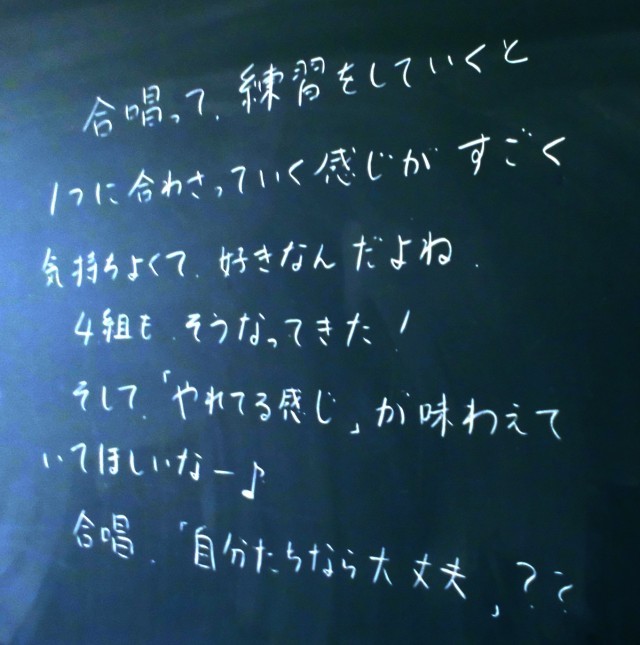 合唱って、練習をしていくと
1つに合わさっていく感じがすごく
気持ちよくて、好きなんだよね。
4組も、そうなってきた！
そして、「やれてる感じ」が味わえて
いてほしいなー♪
合唱、「自分たちなら大丈夫」??